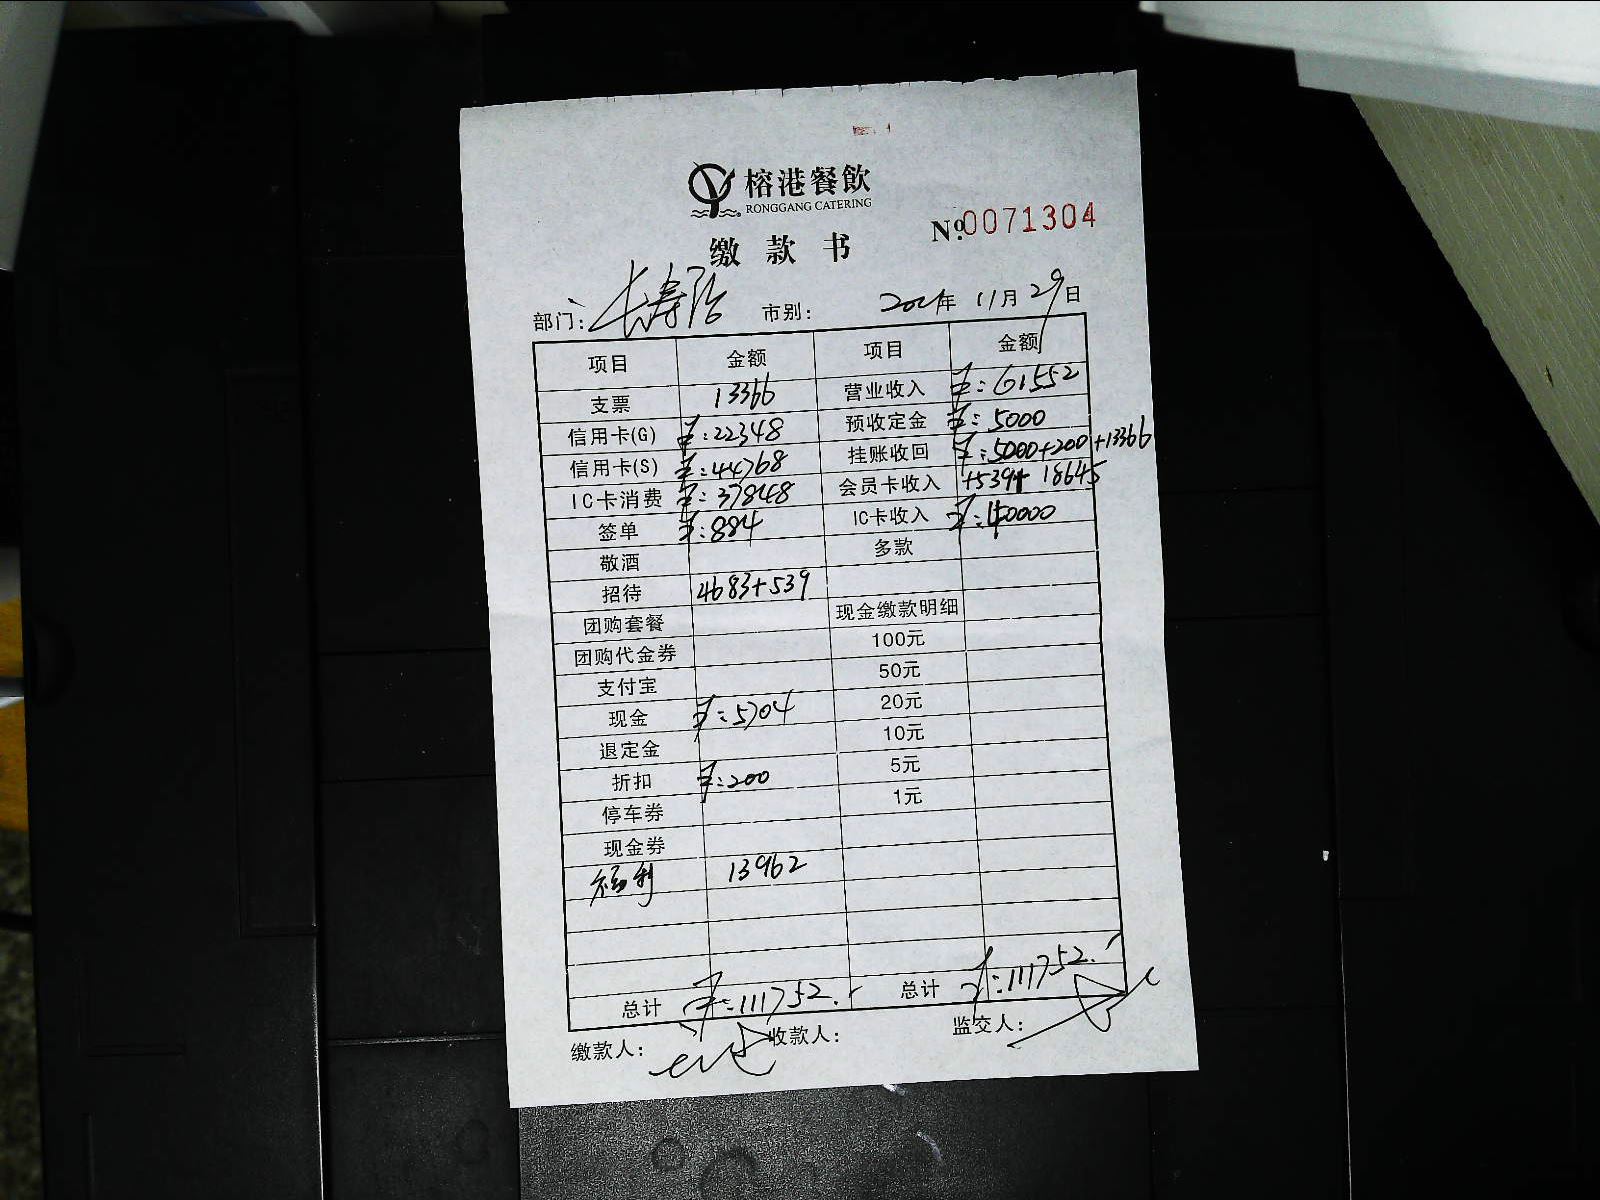 榕港餐飲
RONGGANG CATERING
№0071304
缴款书
部门: 长寿 市别: 2021年 11月 29日
项目 金额 项目 金额
支票 13366 营业收入 ¥:61552
信用卡(G) ¥:22348 预收定金 ¥:5000
信用卡(S) ¥:44768 挂账收回 ¥:5000+200+13366
IC卡消费 ¥:37848 会员卡收入 +539+18645
签单 ¥:884 IC卡收入 ¥:40000
敬酒 多款
招待 4683+539
团购套餐 现金缴款明细
团购代金券 100元
支付宝 50元
现金 ¥:5704 20元
退定金 10元
折扣 ¥:200 5元
停车券 1元
现金券
福利 13962
总计 ¥:111752. 总计 ¥:111752.
缴款人: 收款人: 监交人: